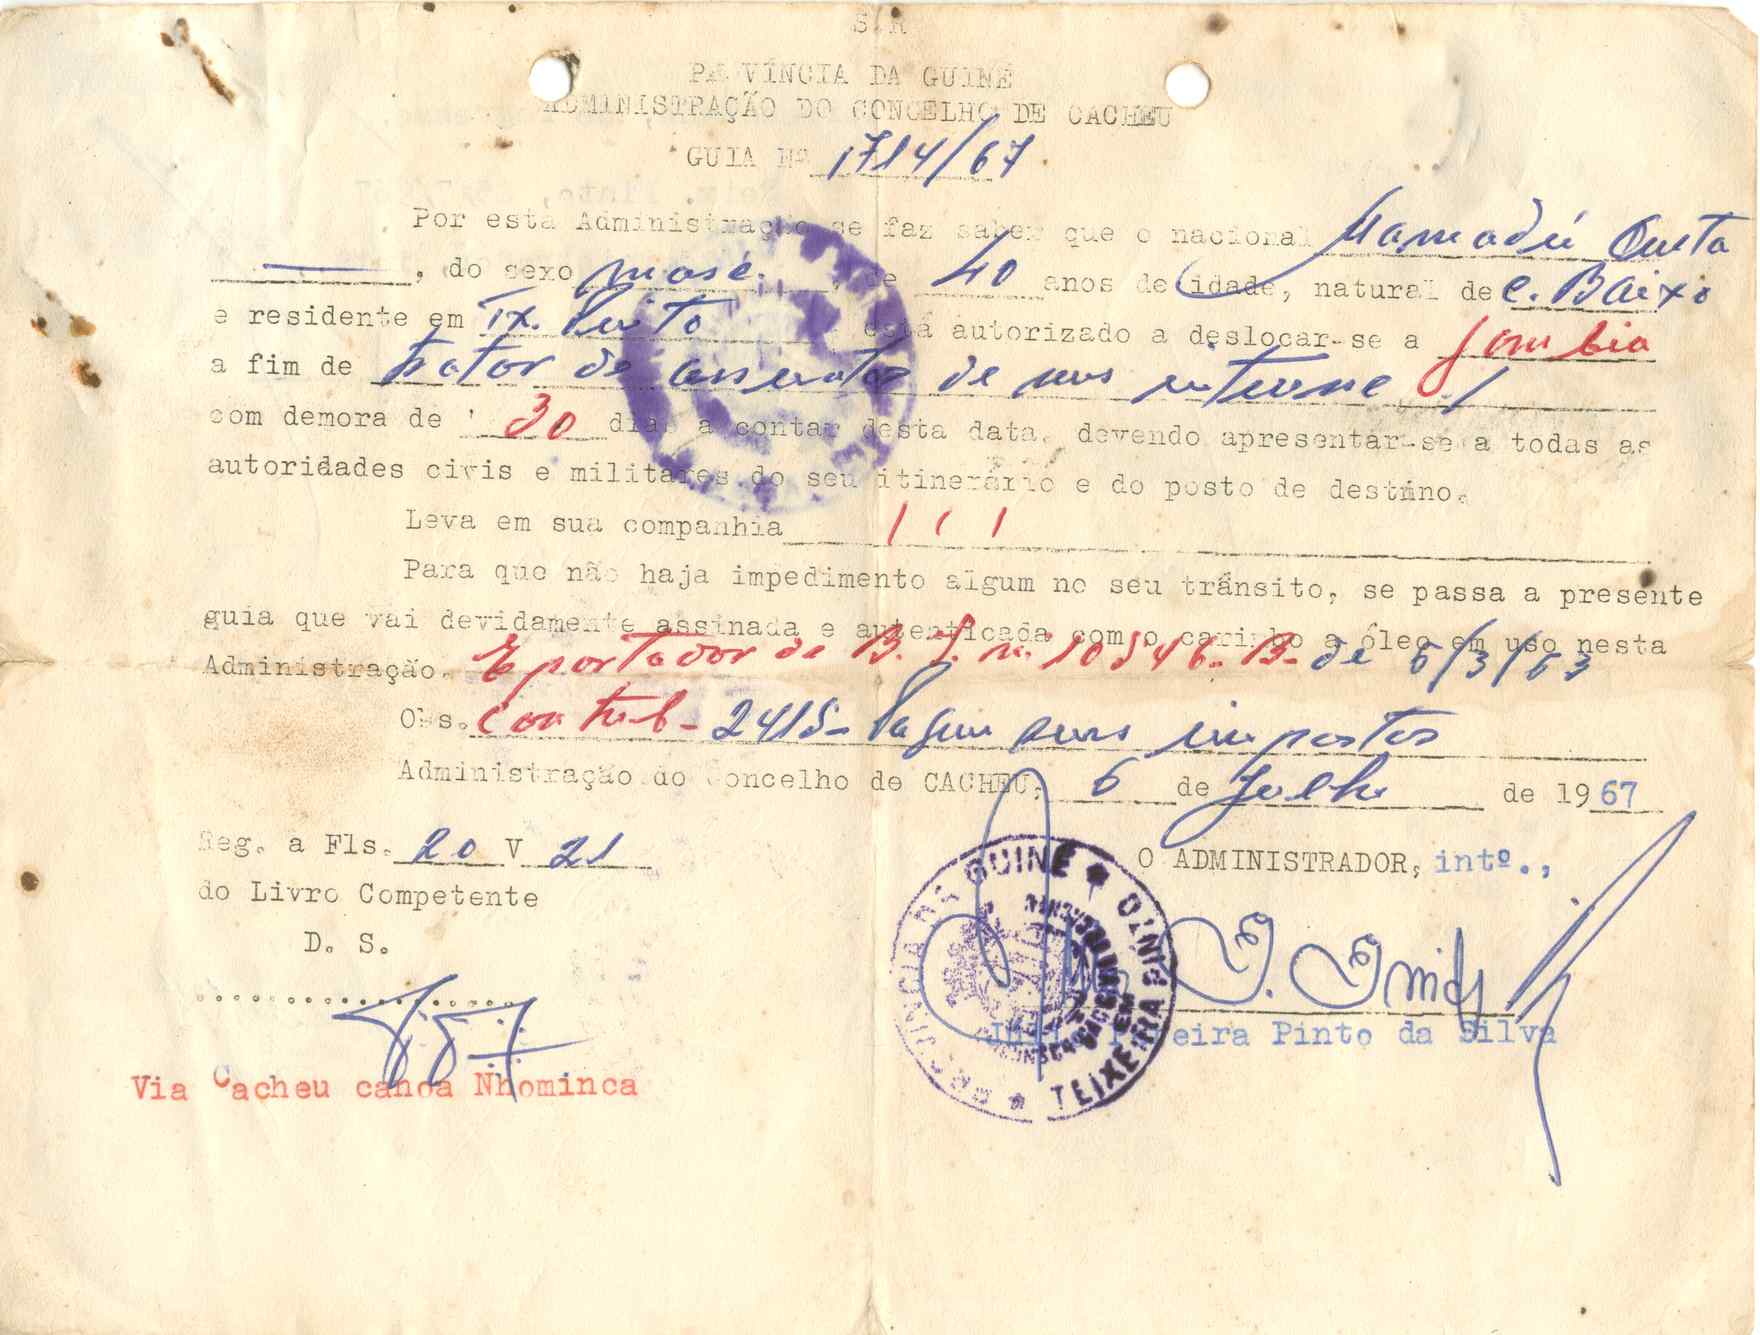 S. R
PROVÍNCIA DA GUINÉ
ADMINISTRAÇÃO DO CONCELHO DE CACHEU
GUIA Nº 1714/67.
Por esta Administração se faz saber que o nacional Mamadú
, do sexo masc. , de 40 anos de idade, natural de C. Baixo
e residente em Tx. Pinto está autorizado a deslocar-se a Gambia
a fim de tratar de assuntos de seus interesse
com demora de 30 dias a contar desta data, devendo apresentar-se a todas as
autoridades civis e militares do seu itinerário e do posto de destino.
Leva em sua companhia
Para que não haja impedimento algum no seu trânsito, se passa a presente
guia que vai devidamente assinada e autenticada com o carimbo a óleo em uso nesta
Administração. E portador de B. I. nº 10546-B- de 6/3/63
Obs. Contrib- 2415- Pagou seus impostos
Administração do Concelho de CACHEU, 6 de Julho de 1967
Reg. a Fls. 20 V 21
O ADMINISTRADOR, intº.,
do Livro Competente
D. S.
Pereira Pinto da Silva
Via Cacheu canoa Nhominca
PROVÍNCIA DA GUINÉ * TEIXEIRA PINTO *